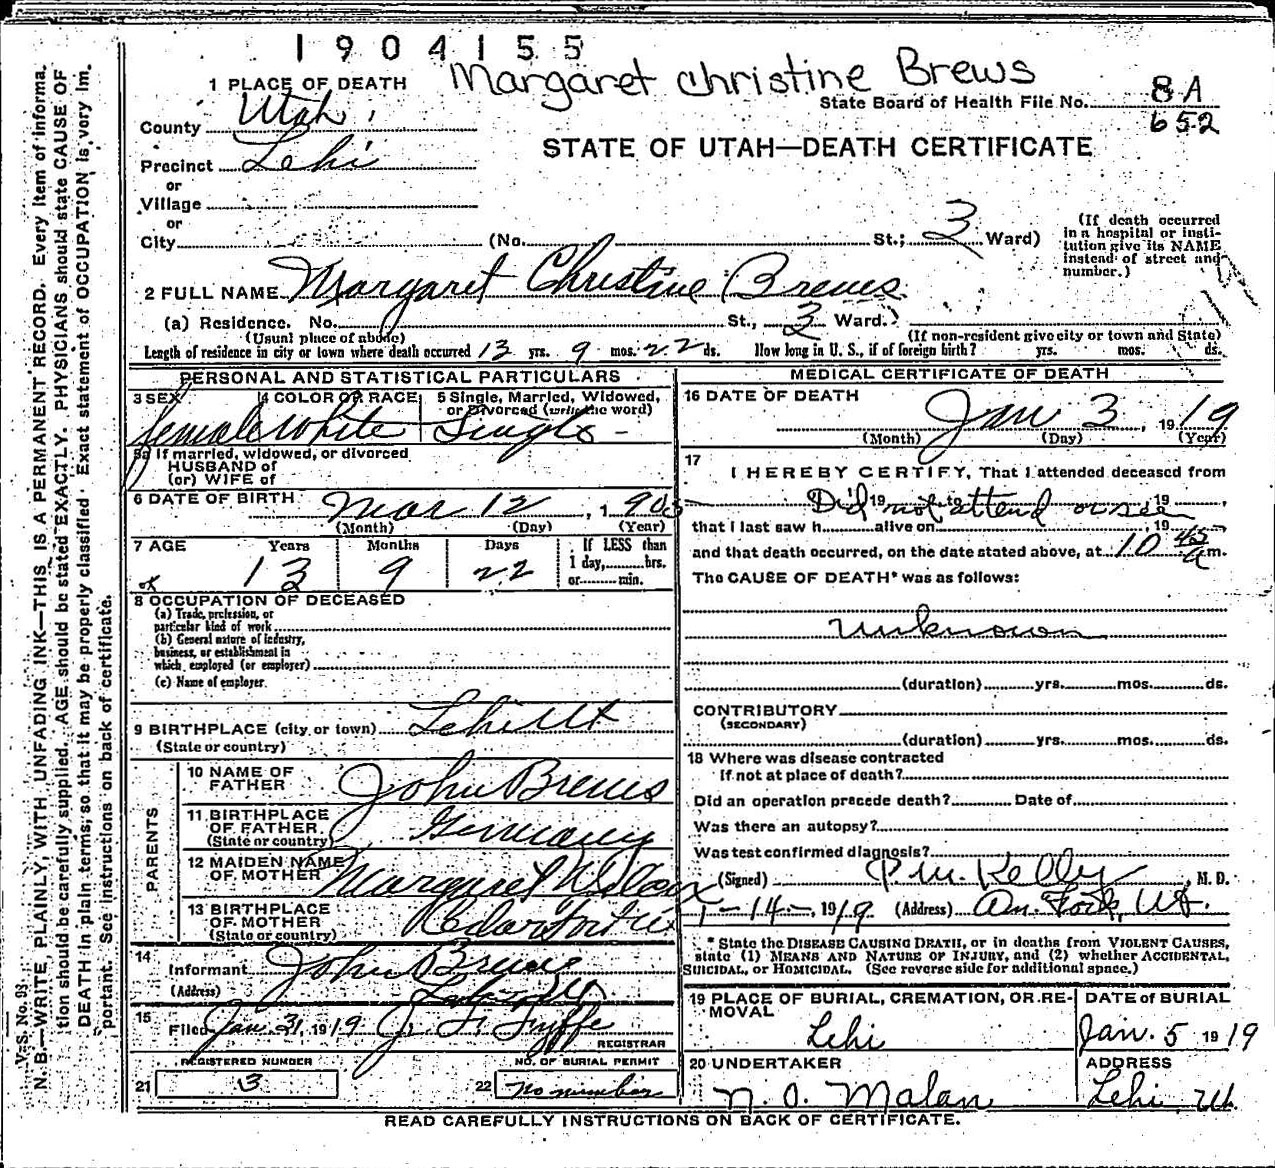 1904155
Margaret Christine Brews
1 PLACE OF DEATH
State Board of Health File No. 8A
652
County Utah
STATE OF UTAH—DEATH CERTIFICATE
Precinct Lehi
or
Village
or
City (No. St.; 3 Ward)
(If death occurred in a hospital or institution give its NAME instead of street and number.)
2 FULL NAME Margaret Christine Brews
(a) Residence. No. St., 3 Ward.
(Usual place of above) (If non-resident give city or town and State)
Length of residence in city or town where death occurred 13 yrs. 9 mos. 22 ds. How long in U. S., if of foreign birth? yrs. mos. ds.
PERSONAL AND STATISTICAL PARTICULARS
3 SEX 4 COLOR OR RACE 5 Single, Married, Widowed, or Divorced (write the word)
female White Single
5a If married, widowed, or divorced
HUSBAND of
(or) WIFE of
6 DATE OF BIRTH Mar 12, 1905
(Month) (Day) (Year)
7 AGE Years Months Days If LESS than
1 day, hrs.
or min.
13 9 22
8 OCCUPATION OF DECEASED
(a) Trade, profession, or
particular kind of work
(b) General nature of industry,
business, or establishment in
which employed (or employer)
(c) Name of employer
9 BIRTHPLACE (city or town) Lehi Ut
(State or country)
PARENTS
10 NAME OF FATHER John Brews
11 BIRTHPLACE OF FATHER Germany
(State or country)
12 MAIDEN NAME OF MOTHER Margaret
13 BIRTHPLACE OF MOTHER Cedar Fort
(State or country)
14
Informant John Brews
(Address)
15
Filed Jan. 31, 1919 J. F. Fyffe
REGISTRAR
REGISTERED NUMBER NO. OF BURIAL PERMIT
21 3 22 no number
MEDICAL CERTIFICATE OF DEATH
16 DATE OF DEATH Jan 3, 1919
(Month) (Day) (Year)
17
I HEREBY CERTIFY, That I attended deceased from
Did 19 not to attend or see, 19
that I last saw h alive on , 19
and that death occurred, on the date stated above, at 10 45 a m.
The CAUSE OF DEATH* was as follows:
Unknown
(duration) yrs. mos. ds.
CONTRIBUTORY
(SECONDARY)
(duration) yrs. mos. ds.
18 Where was disease contracted
If not at place of death?
Did an operation precede death? Date of
Was there an autopsy?
Was test confirmed diagnosis?
(Signed) P. M. Kelly, M. D.
1-14-, 1919 (Address) Am. Fork, Ut.
* State the DISEASE CAUSING DEATH, or in deaths from VIOLENT CAUSES,
state (1) MEANS AND NATURE OF INJURY, and (2) whether ACCIDENTAL,
SUICIDAL, or HOMICIDAL. (See reverse side for additional space.)
19 PLACE OF BURIAL, CREMATION, OR RE-
MOVAL
Lehi
DATE of BURIAL
Jan. 5 1919
20 UNDERTAKER
N. O. Malan
ADDRESS
Lehi, Ut.
READ CAREFULLY INSTRUCTIONS ON BACK OF CERTIFICATE.
V. S. No. 93.
N. B.—WRITE PLAINLY, WITH UNFADING INK—THIS IS A PERMANENT RECORD. Every item of informa-
tion should be carefully supplied. AGE should be stated EXACTLY. PHYSICIANS should state CAUSE OF
DEATH in plain terms, so that it may be properly classified. Exact statement of OCCUPATION is very im-
portant. See instructions on back of certificate.